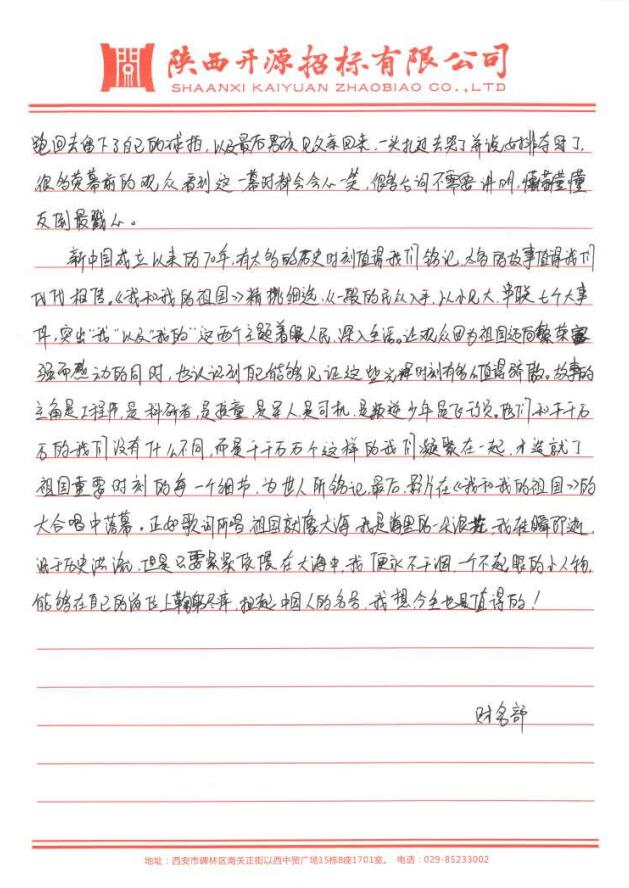 陕西开源招标有限公司
SHAANXI KAIYUAN ZHAOBIAO CO.,LTD
跑回去留下了自己的球拍，以及最后男孩见父亲回来，一头扎过去哭了并说女排夺冠了，
很多荧幕前的观众看到这一幕时都会会心一笑，很多台词不需要讲明，懵懵懂懂
反倒最戳心。
新中国成立以来的70年，有太多的历史时刻值得我们铭记，太多的故事值得我们
代代相传。《我和我的祖国》精挑细选，从一般的民众入手，以小见大，串联七个大事
件，突出“我”以及“我的”这两个主题着眼人民，深入生活。让观众因为祖国迈向繁荣富
强而感动的同时，也认识到自己能够见证这些光辉时刻有多么值得骄傲。故事的
主角是工程师，是科研者，是孩童，是军人，是司机，是叛逆少年，是飞行员。他们和千千万
万的我们没有什么不同，而是千千万万个这样的我们凝聚在一起，才造就了
祖国重要时刻的每一个细节，为世人所铭记。最后，影片在《我和我的祖国》的
大合唱中落幕。正如歌词所唱祖国就像大海，我是海里的一朵浪花，我在瞬即逝
于历史洪流，但是只要紧紧依偎在大海中，我便永不干涸，一个不起眼的小人物，
能够在自己的岗位上鞠躬尽瘁，担起中国人的名号，我想今生也是值得的！
财务部
地址：西安市碑林区南关正街以西中贸广场15栋B座1701室。 电话：029-85233002